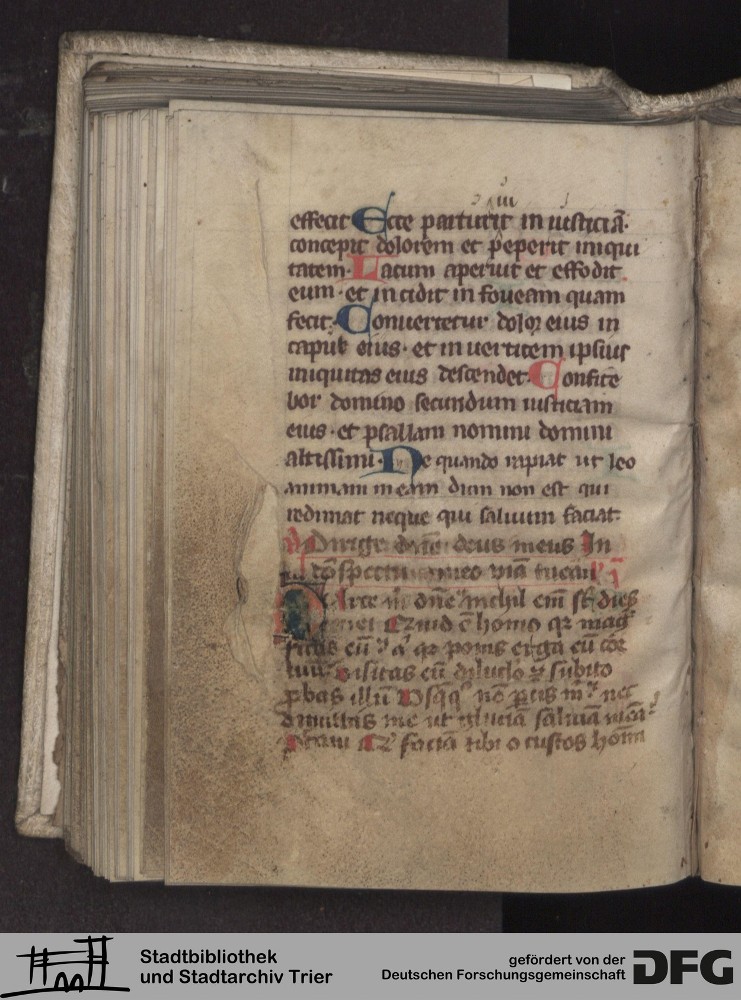 effecit Ecce parturiit in iusticiā·
concepit dolorem et peperit iniqui
tatem· Lacum aperuit et effodit
eum · et incidit in foueam quam
fecit· Conuertetur dolor eius in
caput eius · et in uerticem ipsius
iniquitas eius descendet· Confite
bor domino secundum iusticiam
eius · et psallam nomini domini
altissimi· Ne quando rapiat ut leo
animam meam dum non est qui
redimat neque qui saluum faciat·
Dirige dñe deus meus In
cōspectu meo viā tuam
Parce m dñe nichil eni st dies
mei Quid ē homo qr mag
eū qr ponis erga eū cor
tuū visitas eū diluclo z subito
pbas illū nō pcis m nec
dimittis me ut glutiā saliuā meā
faciā tibi o custos homi
Stadtbibliothek
und Stadtarchiv Trier
gefördert von der
Deutschen Forschungsgemeinschaft
DFG